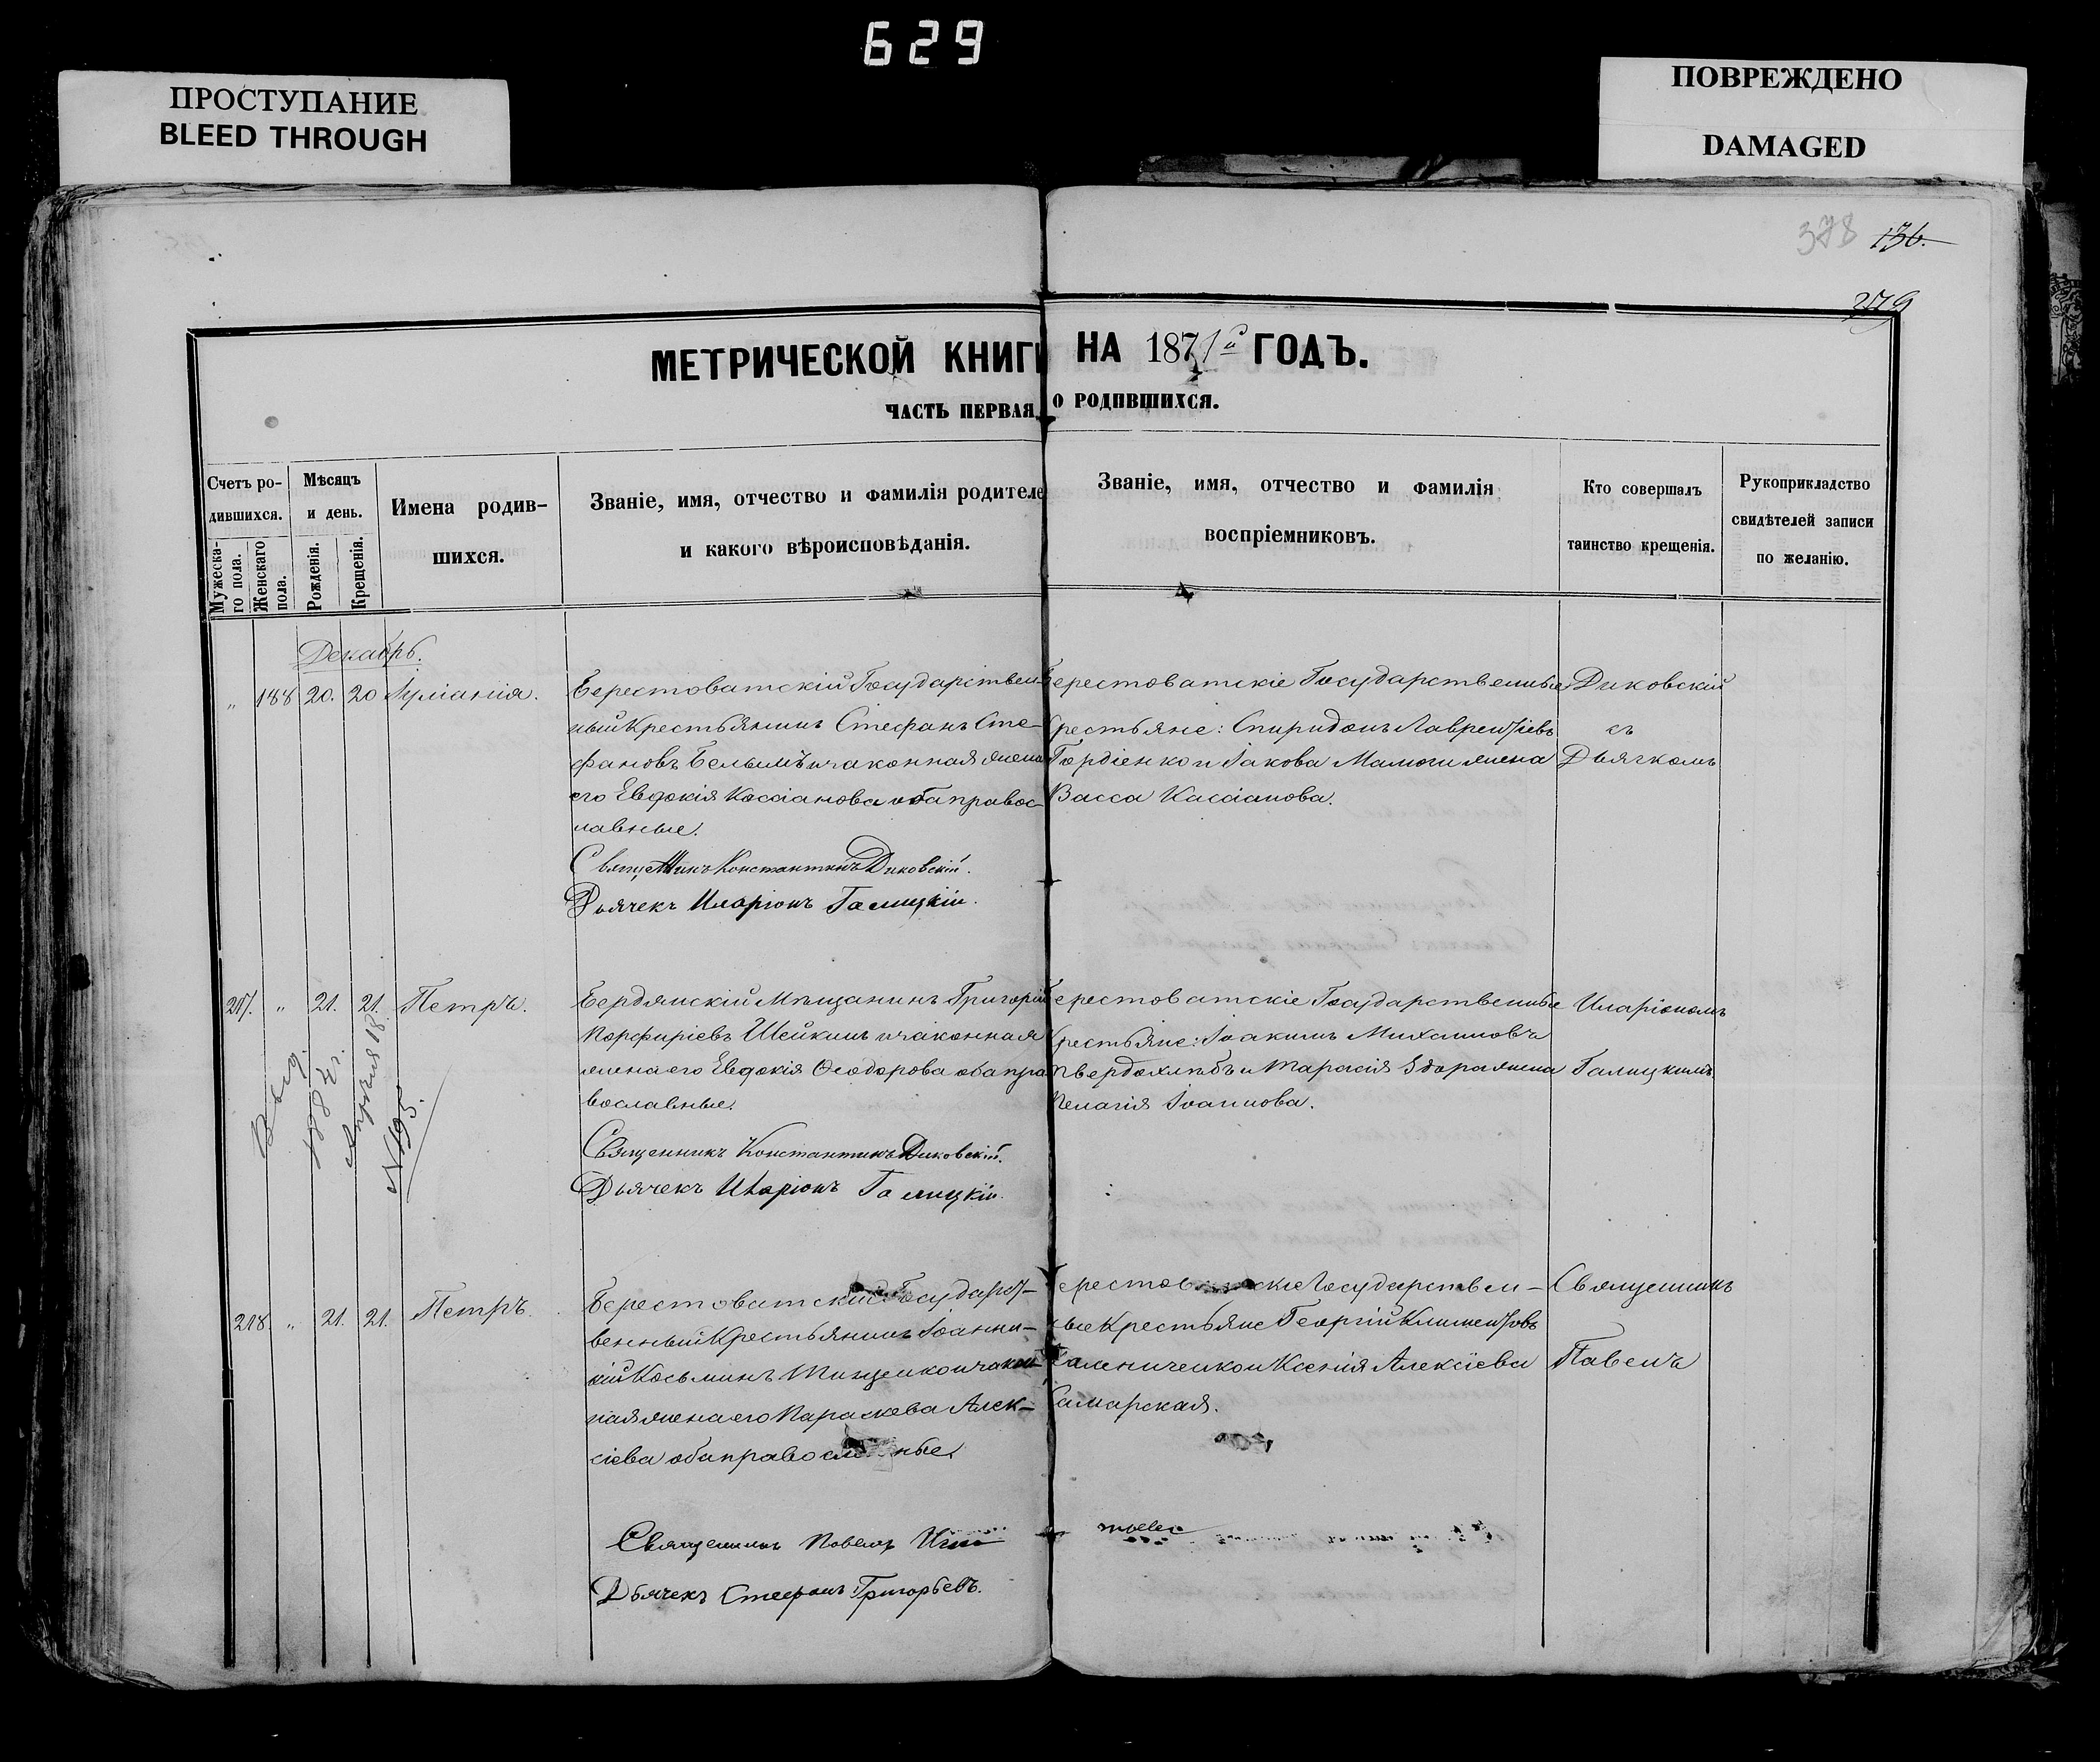 629
ПРОСТУПАНИЕ
BLEED THROUGH
ПОВРЕЖДЕНО
DAMAGED
378 136.
379
МЕТРИЧЕСКОЙ КНИГИ НА 1871й ГОДЪ.
ЧАСТЬ ПЕРВАЯ, О РОДИВШИХСЯ.
Счетъ ро-
дившихся.
Мужеска-
го пола.
Женскаго
пола.
Мѣсяцъ
и день.
Рожденія.
Крещенія.
Имена родив-
шихся.
Званіе, имя, отчество и фамилія родителе
и какого вѣроисповѣданія.
Званіе, имя, отчество и фамилія
воспріемниковъ.
Кто совершалъ
таинство крещенія.
Рукоприкладство
свидѣтелей записи
по желанію.
Декабрь.
„ 188 20. 20 Іуліанія.
Берестоватскій Государствен-
ный Крестьянинъ Стефанъ Сте-
фановъ Белымъ и законная жена
его Евдокія Кассіанова оба правос-
лавные.
Священникъ Константинъ Диковскій.
Дьячекъ Иларіонъ Галицкій.
Берестоватскіе Государственные
Крестьяне: Спиридонъ Лаврентіевъ
Гордіенко и Іакова жена
Васса Кассіанова.
Диковскій
съ
Дьячкомъ
217. „ 21. 21. Петръ.
Выд.
188 г.
Апрѣля 18
№195.
Бердянскій Мѣщанинъ Григорій
Порфиріевъ Шейкинъ и законная
жена его Евдокія Ѳеодорова оба пра
вославные.
Священникъ Константинъ Диковскій.
Дьячекъ Иларіонъ Галицкій.
Берестоватскіе Государственные
Крестьяне: Іоакимъ Михаиловъ
Твердохлѣбъ и Тарасія жена
Пелагія Іоаннова.
Иларіономъ
Галицкимъ
218. „ 21. 21. Петръ.
Берестоватскій Государст-
венный Крестьянинъ Іоанни-
кій Косьминъ Тищенко и закон-
ная жена его Параскева Алек-
сіева оба православные.
Священникъ Павелъ
Дьячекъ Стефанъ Григорьевъ.
ерестов скіе Государствен-
ные Крестьяне Георгій Климентовъ
Каленниченко и Ксенія Алексіева
Самарская.
Священникъ
Павелъ